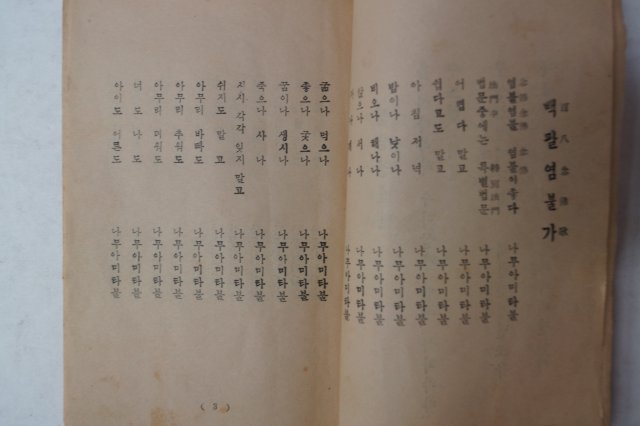 백팔염불가
百八念佛歌
念佛念佛 念佛
염불염불 염불이좋다 나무아미타불
法門中 特別法門
법문중에는 특별법문 나무아미타불
어렵다 말고 나무아미타불
쉽다고도 말고 나무아미타불
아 침 저 녁 나무아미타불
밤이나 낮이나 나무아미타불
비오나 해나나 나무아미타불
앉으나 서나 나무아미타불
나무아미타불
굶으나 먹으나 나무아미타불
좋으나 궂으나 나무아미타불
꿈이나 생시나 나무아미타불
죽으나 사 나 나무아미타불
시시각각 잊지 말고 나무아미타불
쉬지도 말 고 나무아미타불
아무리 바빠도 나무아미타불
아무리 추워도 나무아미타불
아무리 미워도 나무아미타불
너 도 나 도 나무아미타불
아이도 어른도 나무아미타불
( 3 )